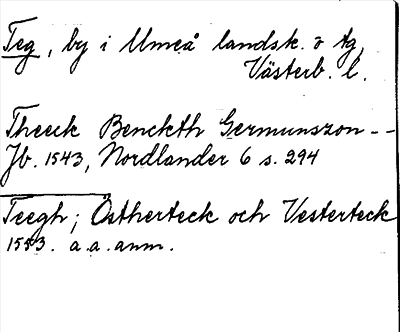 Teg, by i Umeå landsk. o tg,
Västerb. l.
Theeck Benckth Germunszon - -
Jb. 1543, Nordlander 6 s. 294
Teegh; Östherteck och Vesterteck
1553. a.a. anm.